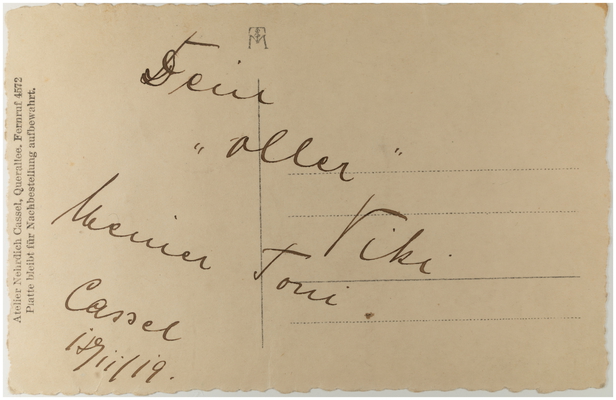 Dein
"oller"
Viki
Meiner Toni
Cassel
18/11/19.
Atelier Nehrdich Cassel, Querallee. Fernruf 4572
Platte bleibt für Nachbestellung aufbewahrt.